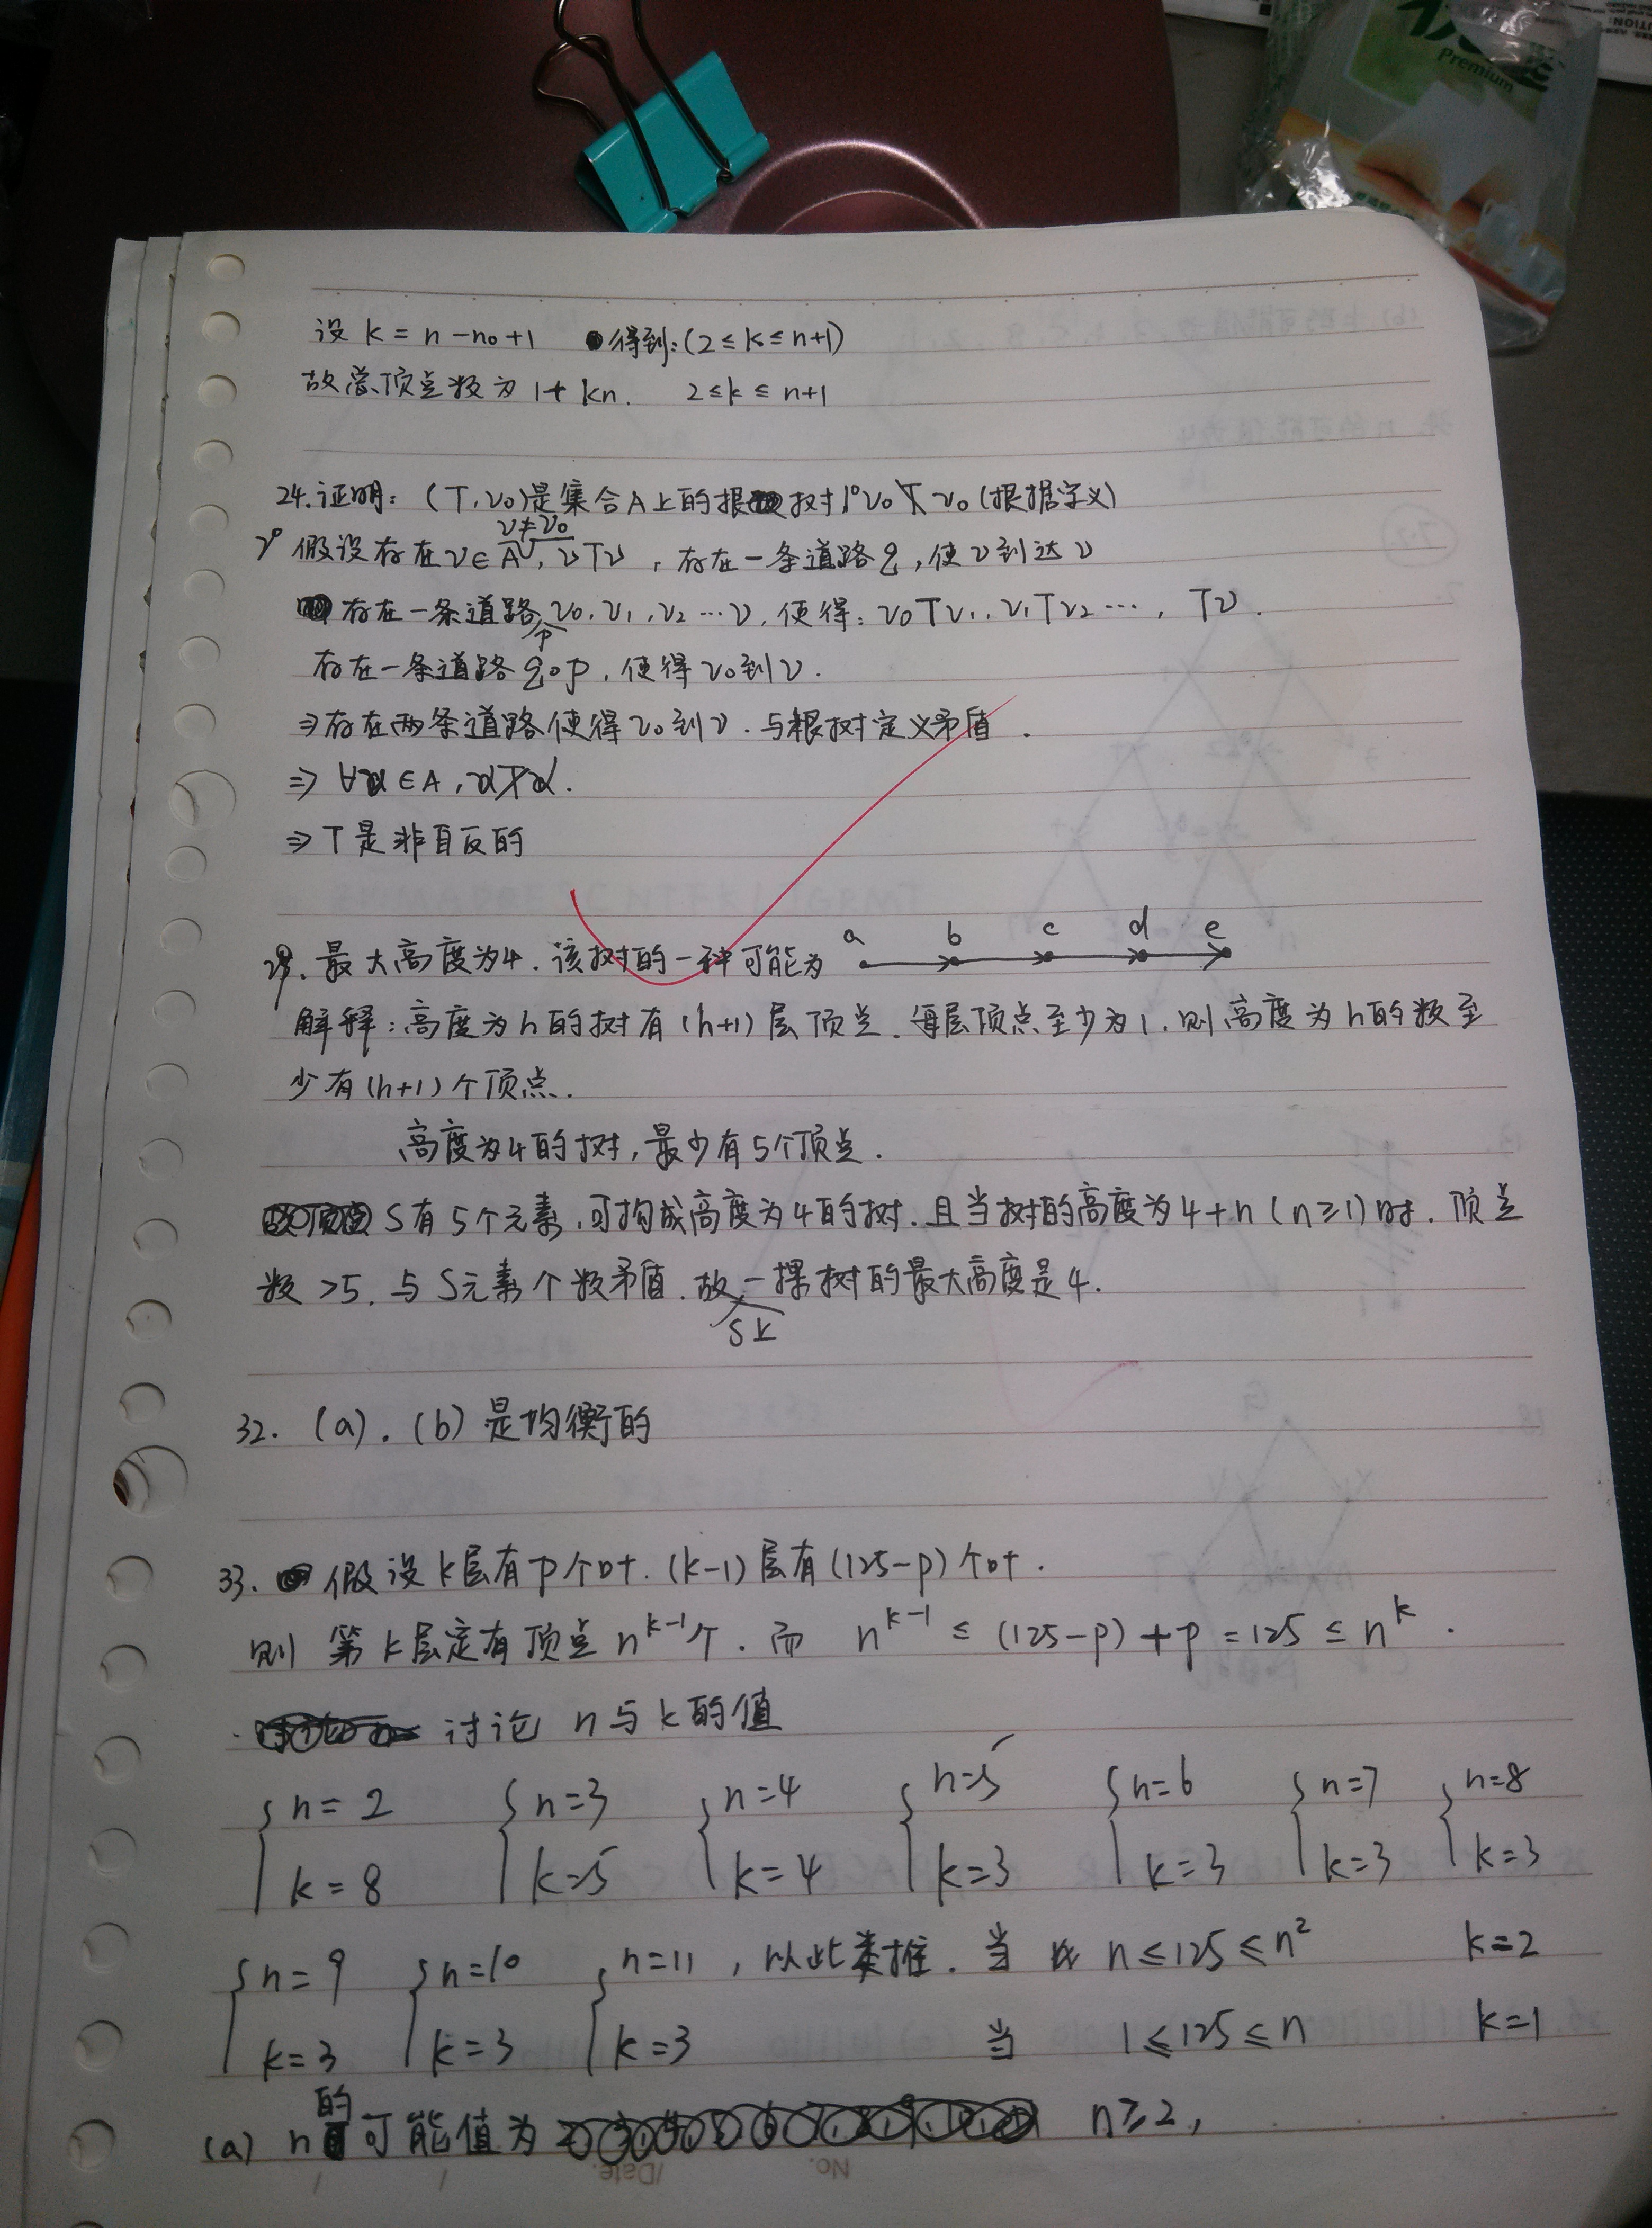 Premium
设 k = n - n₀ + 1 得到:(2 ≤ k ≤ n+1)
故总顶点数为 1 + kn. 2 ≤ k ≤ n+1
24. 证明: (T, v₀)是集合A上的根树 1° v₀ T̸ v₀ (根据定义)
2° 假设存在 v ∈ A, v ≠ v₀, v T v, 存在一条道路 q, 使 v 到达 v
存在一条道路 p v₀, v₁, v₂ … v, 使得: v₀ T v₁, v₁ T v₂ …, T v.
存在一条道路 q∘p, 使得 v₀ 到 v.
⇒ 存在两条道路使得 v₀ 到 v. 与根树定义矛盾.
⇒ ∀a ∈ A, a T̸ a.
⇒ T 是非自反的
最大高度为4. 该树的一种可能为 a b c d e
解释: 高度为h的树有(h+1)层顶点. 每层顶点至少为1. 则高度为h的数至
少有(h+1)个顶点.
高度为4的树, 最少有5个顶点.
S有5个元素, 可构成高度为4的树. 且当树的高度为4+n (n≥1)时. 顶点
数 >5. 与S元素个数矛盾. 故S上一棵树的最大高度是4.
32. (a). (b) 是均衡的
33. 假设k层有p个叶. (k-1)层有(125-p)个叶.
则 第k层定有顶点 nᵏ⁻¹个. 而 nᵏ⁻¹ ≤ (125-p)+p = 125 ≤ nᵏ.
讨论 n与k的值
{n=2 {n=3 {n=4 {n=5 {n=6 {n=7 {n=8
k=8 k=5 k=4 k=3 k=3 k=3 k=3
{n=9 {n=10 {n=11, 以此类推. 当 n ≤ 125 ≤ n² k=2
k=3 k=3 k=3 当 1 ≤ 125 ≤ n k=1
(a) n的可能值为 n≥2,